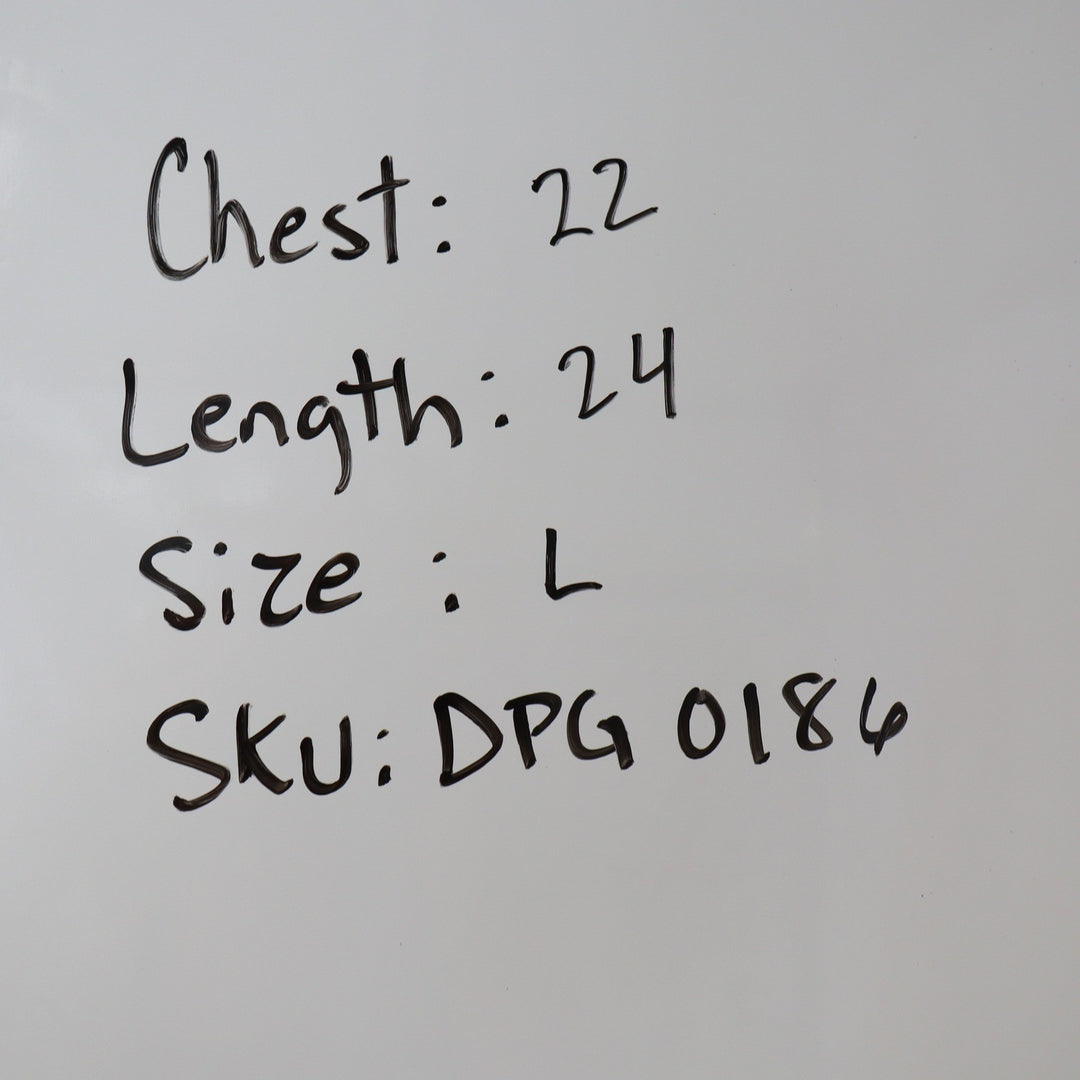 Chest: 22
Length: 24
Size : L
SKU: DPG 0186